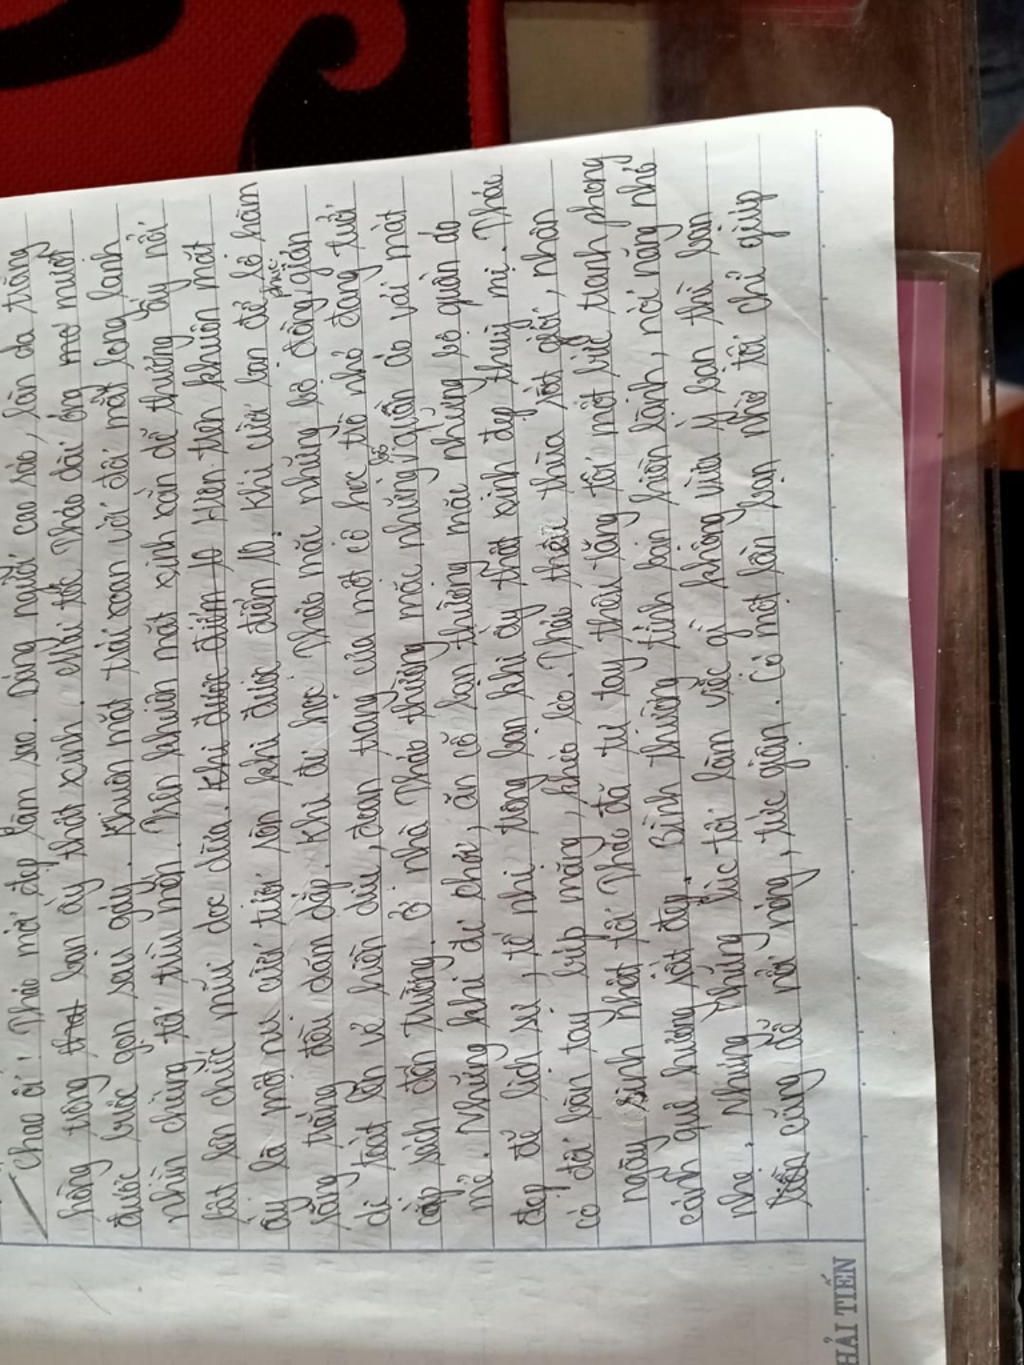 Chao ôi! Thảo mới đẹp làm sao. Dáng người cao ráo, làn da trắng
hồng trông that bạn ấy thật xinh. Mái tóc Thảo dài óng mơ mượt
được buộc gọn sau gáy. Khuôn mặt trái xoan với đôi mắt long lanh
nhìn chúng tôi trìu mến. Trên khuôn mặt xinh xắn dễ thương ấy nổi
bật lên chiếc mũi dọc dừa. Khi được điểm 10 Hiện trên khuôn mặt
ấy là một nụ cười tươi rói khi được điểm 10. Khi cười bạn để lộ hàm
răng trắng đều dăm dắp. Khi đi học Thảo mãi những bộ đồng phục giản
dị toát lên vẻ hiền dịu, đoan trang của một cô học trò nhỏ đang tuổi
cắp sách đến trường. Ở nhà Thảo thường mặc những bộ quần áo vải mát
mẻ. Nhưng khi đi chơi, ăn cỗ bạn thường mặc những bộ quần áo
đẹp đẽ lịch sự, tế nhị trông bạn khi ấy thật xinh đẹp thuỳ mị. Thảo
có đôi bàn tay búp măng, khéo léo. Thảo thêu thùa rất giỏi, nhân
ngày sinh nhật tôi Thảo đã tự tay thêu tặng tôi một bức tranh phong
cảnh quê hương rất đẹp. Bình thường tính bạn hiền lành, nói năng nhỏ
nhẹ. Nhưng những lúc tôi làm việc gì không vừa ý bạn thì bạn
cũng dễ nổi nóng, tức giận. Có một lần bạn nhờ tôi chỉ giúp
HẢI TIẾN